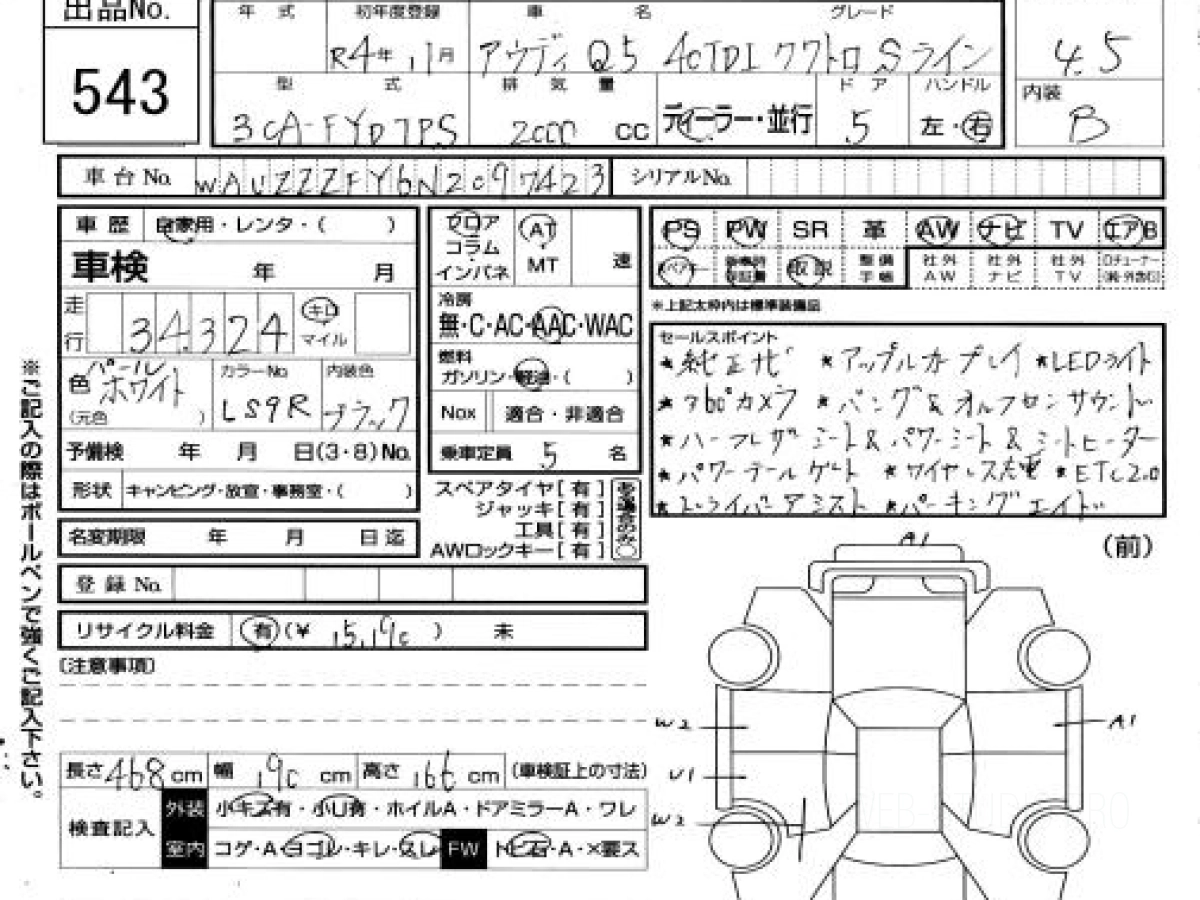 出品No.
543
年式 初年度登録 車名 グレード
R4年 11月 アウディ Q5 40TDI クワトロ Sライン 4.5
型式 排気量 ドア ハンドル 内装
3CA-FYDTPS 2000 CC ディーラー・並行 5 左・右 B
車台No. WAUZZZFY6N2097423 シリアルNo.
車歴 自家用・レンタ・( )
車検 年 月
走行 34,324 キロ マイル
色 パールホワイト (元色 ) カラーNo. LS9R 内装色 ブラック
予備検 年 月 日(3・8)No.
形状 キャンピング・放宣・事務室・( )
名変期限 年 月 日迄
登録No.
リサイクル料金 有(¥ 15,190 ) 未
(注意事項)
フロア コラム インパネ AT MT 速
冷房
無・C・AC・AAC・WAC
燃料
ガソリン・軽油・( )
Nox 適合・非適合
乗車定員 5 名
スペアタイヤ[有]
ジャッキ[有]
工具[有]
AWロックキー[有]
PS PW SR 革 AW ナビ TV エアB
スペアキー 新車時保証書 取説 整備手帳 社外AW 社外ナビ 社外TV
※上記太枠内は標準装備品
セールスポイント
*純正ナビ *アップルカープレイ *LEDライト
*360°カメラ *バング&オルフセンサウンド
*ハーフレザーシート&パワーシート&シートヒーター
*パワーテールゲート *ワイヤレス充電 *ETC2.0
*ドライバーアシスト *パーキングエイド
(前)
A1
W2 A1
U1
W2
長さ 468 cm 幅 190 cm 高さ 166 cm (車検証上の寸法)
検査記入
外装 小キズ有・小凹有・ホイルA・ドアミラーA・ワレ
室内 コゲ・A・ヨゴレ・キレ・スレ FW トビ石・A・×要ス
※ご記入の際はボールペンで強くご記入下さい。